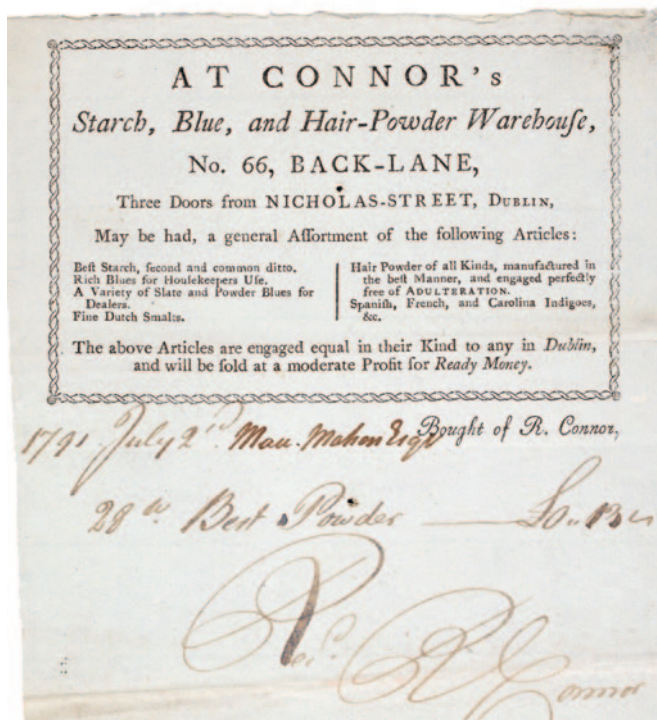 AT CONNOR's
Starch, Blue, and Hair-Powder Warehouſe,
No. 66, BACK-LANE,
Three Doors from NICHOLAS-STREET, DUBLIN,
May be had, a general Aſſortment of the following Articles:
Beſt Starch, ſecond and common ditto.
Rich Blues for Houſekeepers Uſe.
A Variety of Slate and Powder Blues for
Dealers.
Fine Dutch Smalts.
Hair Powder of all Kinds, manufactured in
the beſt Manner, and engaged perfectly
free of ADULTERATION.
Spaniſh, French, and Carolina Indigoes,
&c.
The above Articles are engaged equal in their Kind to any in Dublin,
and will be ſold at a moderate Profit for Ready Money.
1791 July 2nd Mau. Mahon Esqr Bought of R. Connor,
28 Best Powder £0
Recd. R Connor